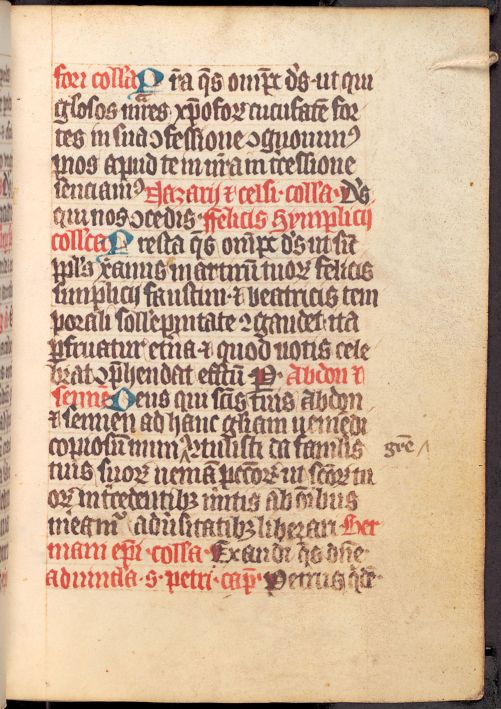 fori collcā P r̄a q̄s om̄pc d̄s ut qui
glōsos mr̄es xp̄ofor̄ cucufatē for
tes in sua ↄfessione ↄgnouim9
inos apud te in nr̄am īt̄cessione
senciam9 Nazarij ⁊ celsi · collā · D̄s
qui nos ↄcedis · ffelicis Symplicij
collcā P resta q̄s om̄pc d̄s ut sic
pp̄ls xp̄ianus martirū tuoꝝ felicis
simplicij faustini · ⁊ beatricis tem
porali sollēpnitate ↄgaudet · ita
ꝑfruatur et̄na · ⁊ quod uotis cele
brat ↄp̄hendat eff̄tū Abdon ⁊
sennē D eus qui sc̄is tuis abdon
⁊ sennen ad hanc gl̄iam ueniēdi
copiosū mun⁹ ^ ꝯtulisti da famulis gr̄e /\
tuis suoꝝ ueniam pēcōꝝ ut sc̄oꝝ tu
oꝝ int̄cedentibꝫ mītis ab oībus
meam⁹ adūsitatibꝫ liberari Ger
mani ep̄i · collā · Exaudi q̄s dn̄e
ad uincla · s · petri · cap̄ · Petrus q̄dē